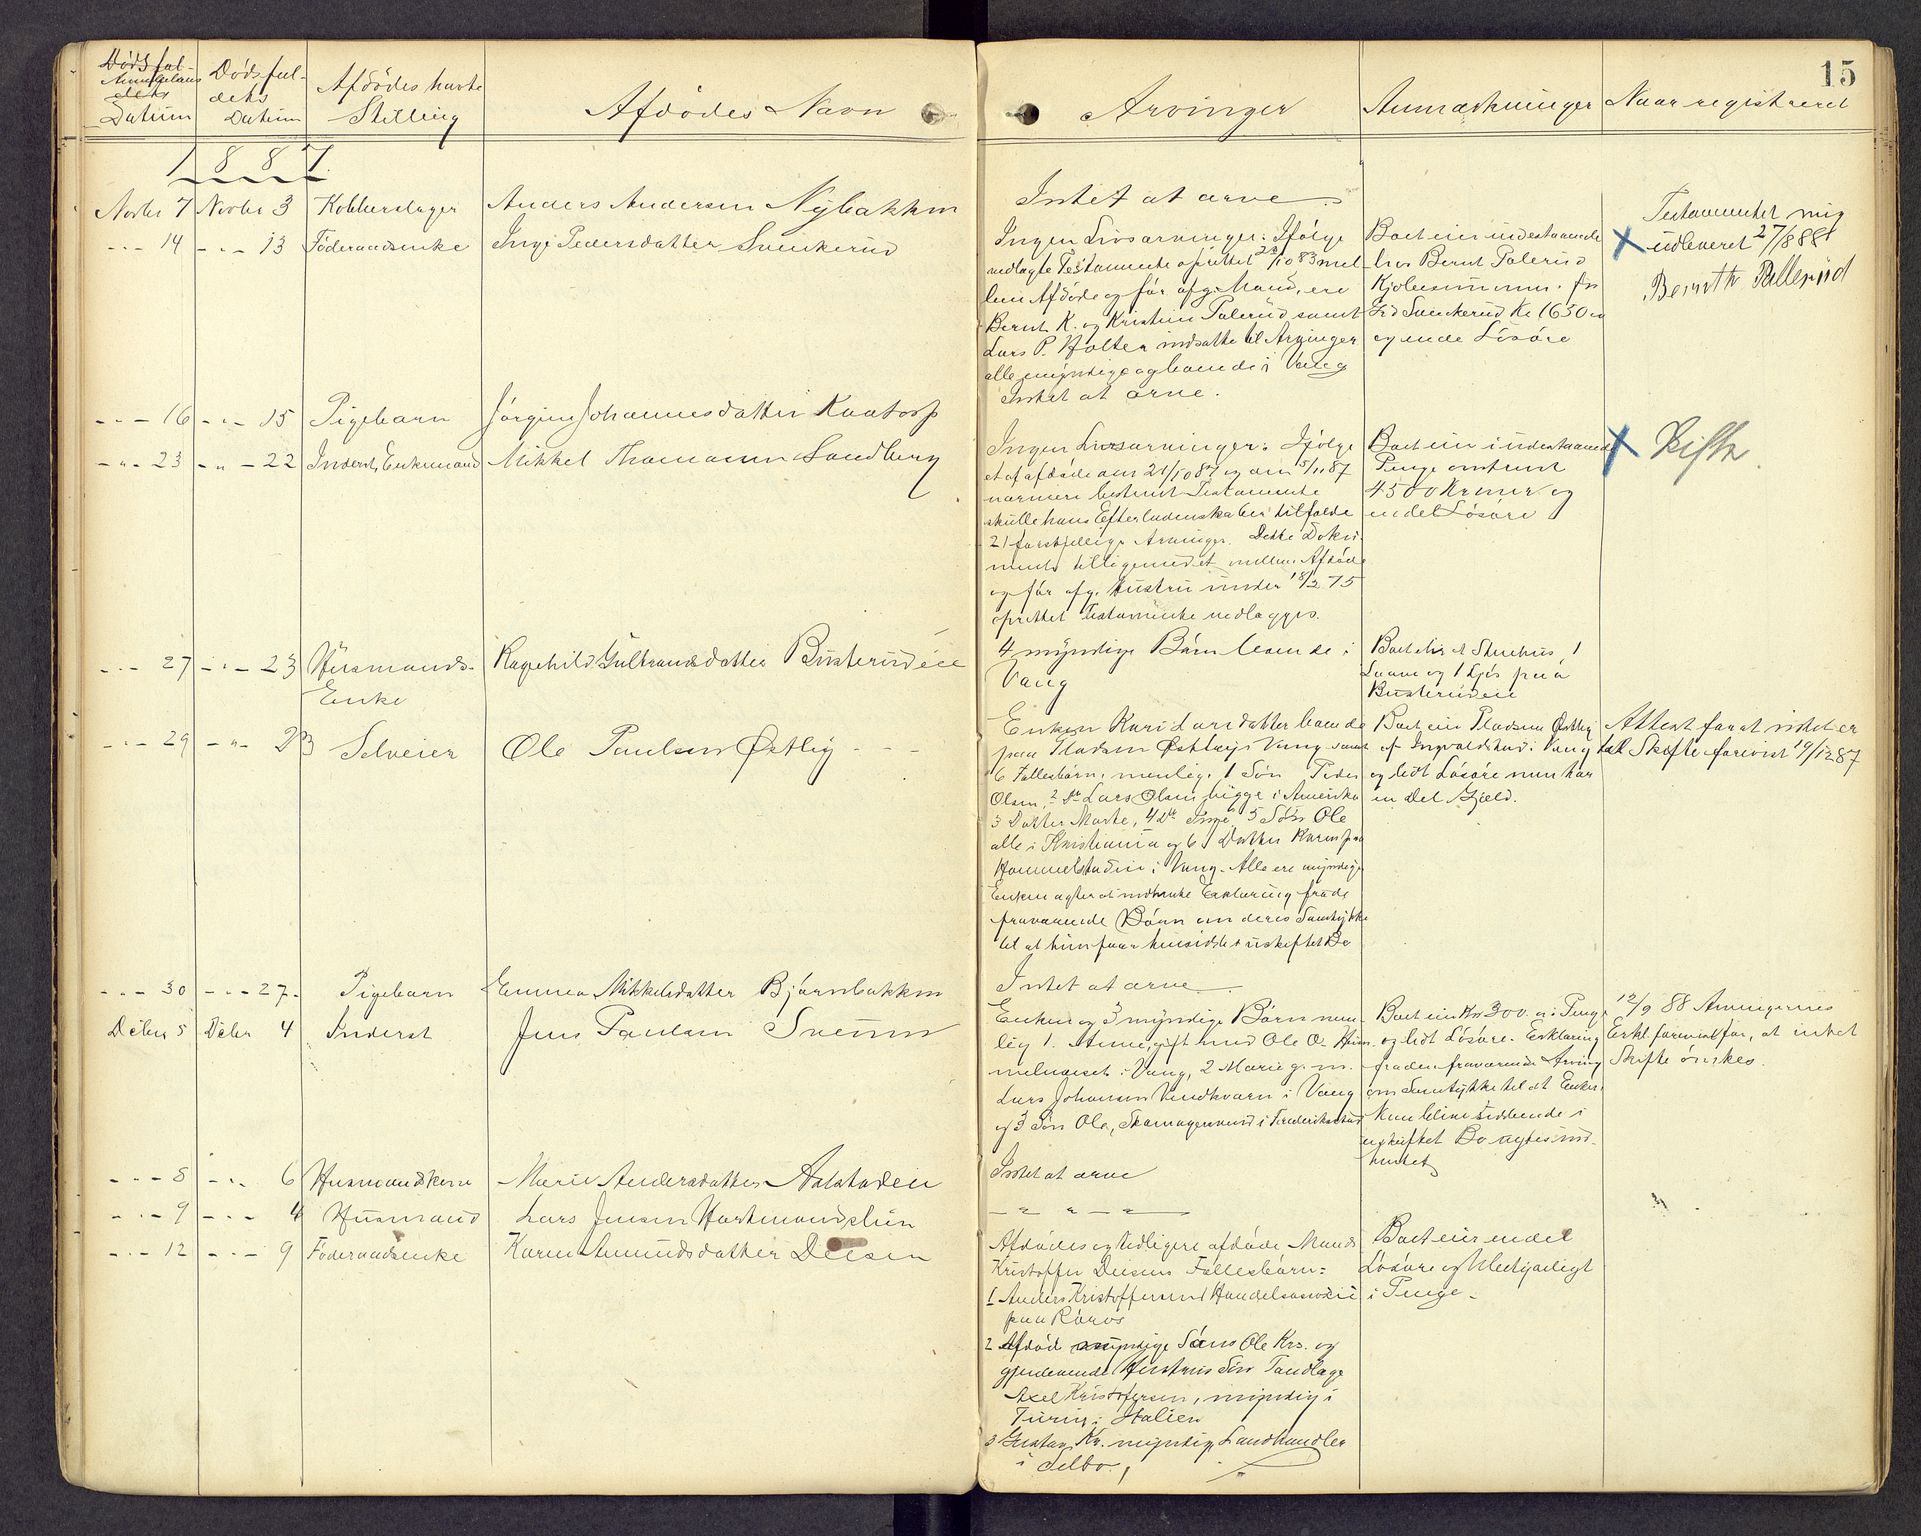 15
Dødsfal-
Anmeldelses
deks
Datum
Dødsfal-
dets
Datum
Afdødes havte
Stilling
Afdødes Navn
Arvinger
Anmærkninger
Naar registreret
1887
Novbr 7 Novbr 3 Kobberslager Anders Andersen Nybakken
Intet at arve.
-"- 14 -"- 13 Föderaadsenke Inge Pedersdatter Svenkerud
Ingen Livsarvinger. Ifølge
nedlagte Testamente oprettet 22/10 83 mel
lem Afdöde og før afg. Mand, ere
Bernt K. og Kristian Palerud samt
Lars P. Holter indsatte til Arvinger
alle myndige og boende i Vang
Boet eier indestaaende
hos Bernt Palerud
Kjøbesummen for
Svenkerud Kr 1630 og
og ende Løsøre
Testamentet mig
udleveret 27/8 88
Bernth Pallerud
-"- 16 -"- 15 Pigebarn Jörgine Johannesdatter Kaatorp
Intet at arve.
-"- 23 -"- 22 Inderst, Enkemand Mikkel Thomassen Sandberg
Ingen Livsarvinger. Ifølge
et af afdöde den 21/10 87 og den 5/11 87
nærmere bestemt Testamente
skulle hans Efterladenskaber tilfalde
21 forskjellige Arvinger. Dette Doku-
ment tilligemed et mellem Afdöde
og før afg. Hustru under 18/2 75
oprettet Testamente nedlægges.
Boet eier i indestaaende
Penge omtrent
4500 Kroner og
endel Løsøre
Skifte.
-"- 27 -"- 23 Husmands-
Enke
Ragnhild Gulbrandsdatter Busterudeie
4 myndige Børn boende i
Vang
Boet eier et Stuehus, 1
Laave og 1 Fjøs paa
Busterudeie
-"- 29 -"- 23 Selveier Ole Paulsen Østby - -
Enken Kari Larsdatter boende
paa Pladsen Østby i Vang samt
6 Fællesbörn, nemlig. 1 Søn Peder
Olsen, 2 do Lars Olsen begge i Amerika
3 Datter Marte, 4 do Inge 5 Søn Ole
alle i Kristiania og 6 Datter Karen paa
Hommelstadeie i Vang. Alle ere myndige
Enken agter at indhente Erklæring fra de
fraværende Börn om deres Samtykke
til at hun faar hensidde i uskiftet Bo
Boet eier Pladsen Østby
af Ingvaldstad i Vang
og lidt Løsøre men har
en Del Gjæld.
Attest for at intet er
til Skifte forevist 19/12 87
-"- 30 -"- 27 Pigebarn Emma Mikkelsdatter Bjørnbakken
Intet at arve
Decbr 5 Decbr 4 Inderst Jens Paulsen Sveum
Enken og 3 myndige Børn nem-
lig 1. Anne, gift med Ole O. Him
melvaiset i Vang, 2 Marie g. m.
Lars Johansen Vindkvarn i Vang
og 3 Søn Ole, Skomagersvend i Frederikstad
Boet eier Kr 300. i Penge
og lidt Løsøre. Erklæring
fra den fraværende Arving
om Samtykke til at Enken
kan blive siddende i
uskiftet Bo agtes ind-
hentet
12/9 88 Arvingernes
Erkl. forevist for, at intet
Skifte ønskes.
-"- 8 -"- 6 Husmandskone Marie Andersdatter Aalstadeie
Intet at arve
-"- 9 -"- 4 Husmand Lars Jensen Hartmandslien
- " - " -
-"- 12 -"- 9 Föderaadsenke Karen Amundsdatter Deisen
Afdödes og tidligere afdöde Mands
Kristoffer Deisens Fællesbörn:
1 Anders Kristoffersen Handelsasocié
paa Röros
2 Afdöd myndige Søns Ole Krs. og
gjenlevende Hustrus Søn Tandlæge
Axel Kristofersen, myndig i
Turin i Italien
3 Gustav Kr. myndig, Landhandler
i Selbo.
Boet eier endel
Løsøre og Ubetydeligt
i Penge.